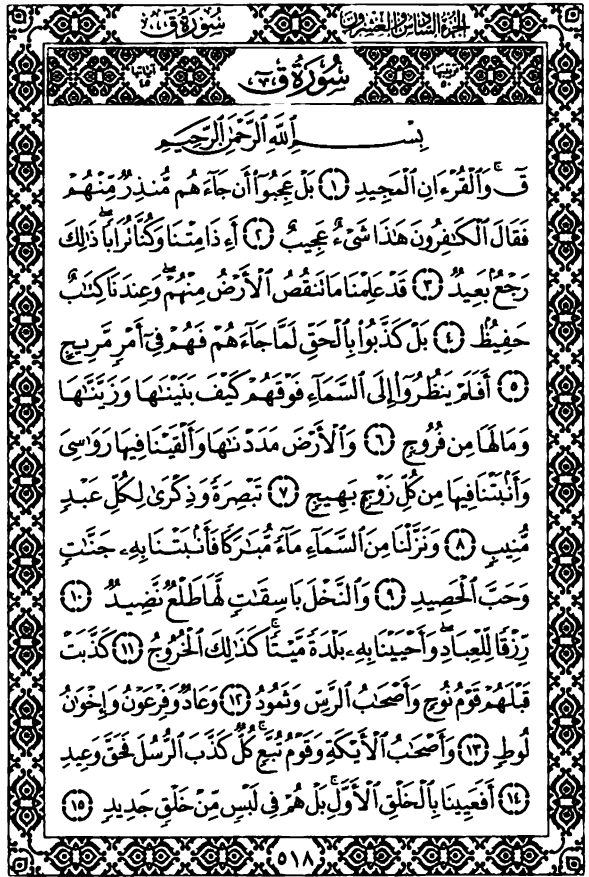 سُورَةُ قٓ الجُزْءُ السَّادِسُ وَالعِشْرُونَ
آيَاتُهَا ٤٥ سُورَةُ قٓ تَرْتِيبُهَا ٥٠
بِسْمِ ٱللَّهِ ٱلرَّحْمَٰنِ ٱلرَّحِيمِ
قٓۚ وَٱلْقُرْءَانِ ٱلْمَجِيدِ ١ بَلْ عَجِبُوٓا۟ أَن جَآءَهُم مُّنذِرٌ مِّنْهُمْ
فَقَالَ ٱلْكَٰفِرُونَ هَٰذَا شَىْءٌ عَجِيبٌ ٢ أَءِذَا مِتْنَا وَكُنَّا تُرَابًاۖ ذَٰلِكَ
رَجْعٌۢ بَعِيدٌ ٣ قَدْ عَلِمْنَا مَا تَنقُصُ ٱلْأَرْضُ مِنْهُمْۖ وَعِندَنَا كِتَٰبٌ
حَفِيظٌۢ ٤ بَلْ كَذَّبُوا۟ بِٱلْحَقِّ لَمَّا جَآءَهُمْ فَهُمْ فِىٓ أَمْرٍ مَّرِيجٍ
٥ أَفَلَمْ يَنظُرُوٓا۟ إِلَى ٱلسَّمَآءِ فَوْقَهُمْ كَيْفَ بَنَيْنَٰهَا وَزَيَّنَّٰهَا
وَمَا لَهَا مِن فُرُوجٍ ٦ وَٱلْأَرْضَ مَدَدْنَٰهَا وَأَلْقَيْنَا فِيهَا رَوَٰسِىَ
وَأَنۢبَتْنَا فِيهَا مِن كُلِّ زَوْجٍۭ بَهِيجٍ ٧ تَبْصِرَةً وَذِكْرَىٰ لِكُلِّ عَبْدٍ
مُّنِيبٍ ٨ وَنَزَّلْنَا مِنَ ٱلسَّمَآءِ مَآءً مُّبَٰرَكًا فَأَنۢبَتْنَا بِهِۦ جَنَّٰتٍ
وَحَبَّ ٱلْحَصِيدِ ٩ وَٱلنَّخْلَ بَاسِقَٰتٍ لَّهَا طَلْعٌ نَّضِيدٌ ١٠
رِّزْقًا لِّلْعِبَادِۖ وَأَحْيَيْنَا بِهِۦ بَلْدَةً مَّيْتًاۚ كَذَٰلِكَ ٱلْخُرُوجُ ١١ كَذَّبَتْ
قَبْلَهُمْ قَوْمُ نُوحٍ وَأَصْحَٰبُ ٱلرَّسِّ وَثَمُودُ ١٢ وَعَادٌ وَفِرْعَوْنُ وَإِخْوَٰنُ
لُوطٍ ١٣ وَأَصْحَٰبُ ٱلْأَيْكَةِ وَقَوْمُ تُبَّعٍۚ كُلٌّ كَذَّبَ ٱلرُّسُلَ فَحَقَّ وَعِيدِ
١٤ أَفَعَيِينَا بِٱلْخَلْقِ ٱلْأَوَّلِۚ بَلْ هُمْ فِى لَبْسٍ مِّنْ خَلْقٍ جَدِيدٍ ١٥
٥١٨